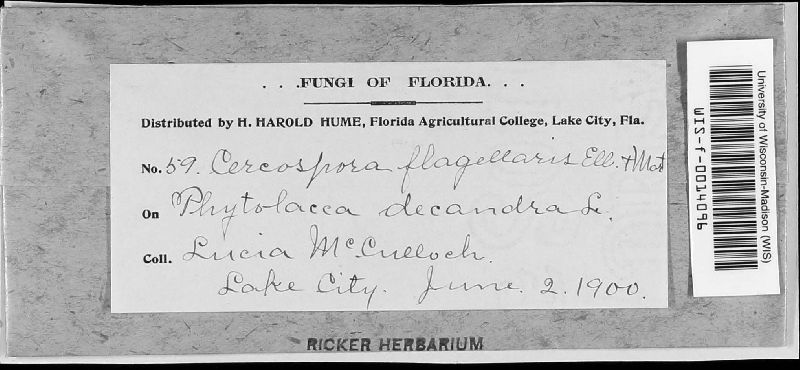 . . .FUNGI OF FLORIDA. . .
Distributed by H. HAROLD HUME, Florida Agricultural College, Lake City, Fla.
No. 59. Cercospora flagellaris Ell. & Mart
On Phytolacca decandra L.
Coll. Lucia McCulloch.
Lake City. June. 2. 1900.
RICKER HERBARIUM
University of Wisconsin-Madison (WIS)
WIS-f-0014096